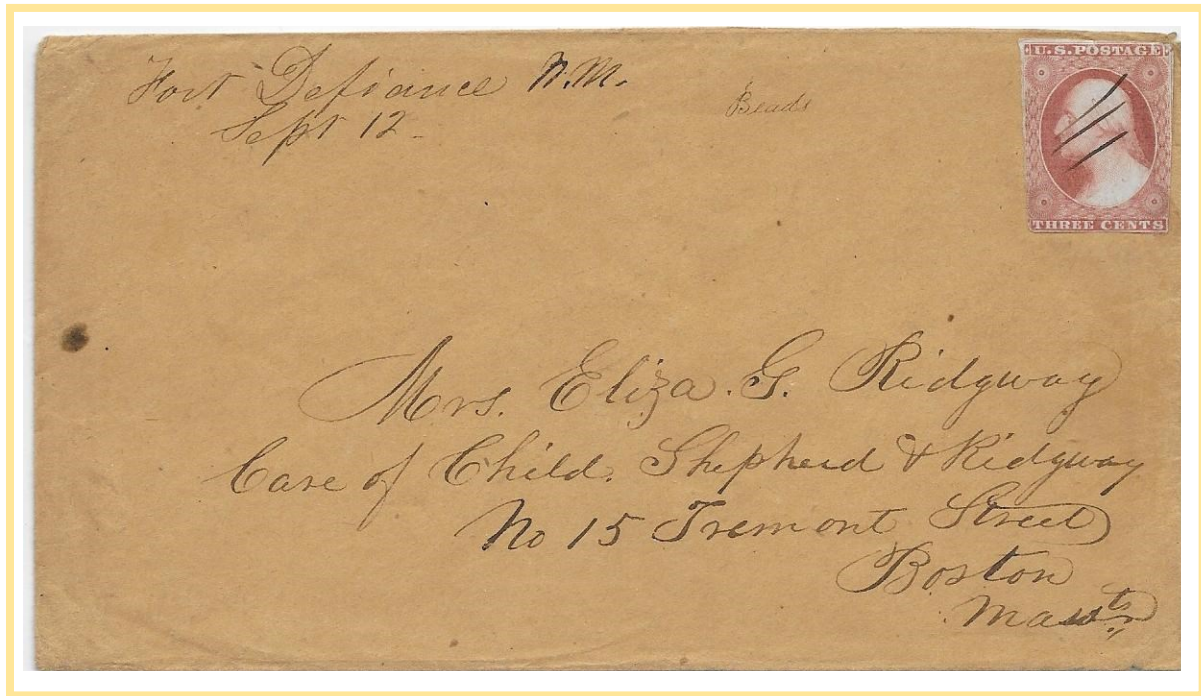 Fort Defiance N.M.
Sept 12
Beads
U.S. POSTAGE
THREE CENTS
Mrs. Eliza. G. Ridgway
Care of Child. Shepherd & Ridgway
No 15 Tremont Street
Boston
Massts